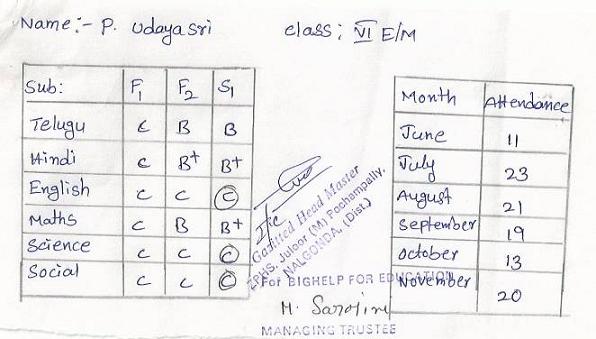 Name:- P. Udayasri class: VI E/M
Sub: F1 F2 S1
Telugu C B B
Hindi C B+ B+
English C C C
Maths C B B+
Science C C C
Social C C C
Month Attendance
June 11
July 23
August 21
September 19
october 13
November 20
I/c
Gazitted Head Master
ZPHS, Juloor (M) Pochampally.
NALGONDA. (Dist.)
For BIGHELP FOR EDUCATION
M. Sarojini
MANAGING TRUSTEE